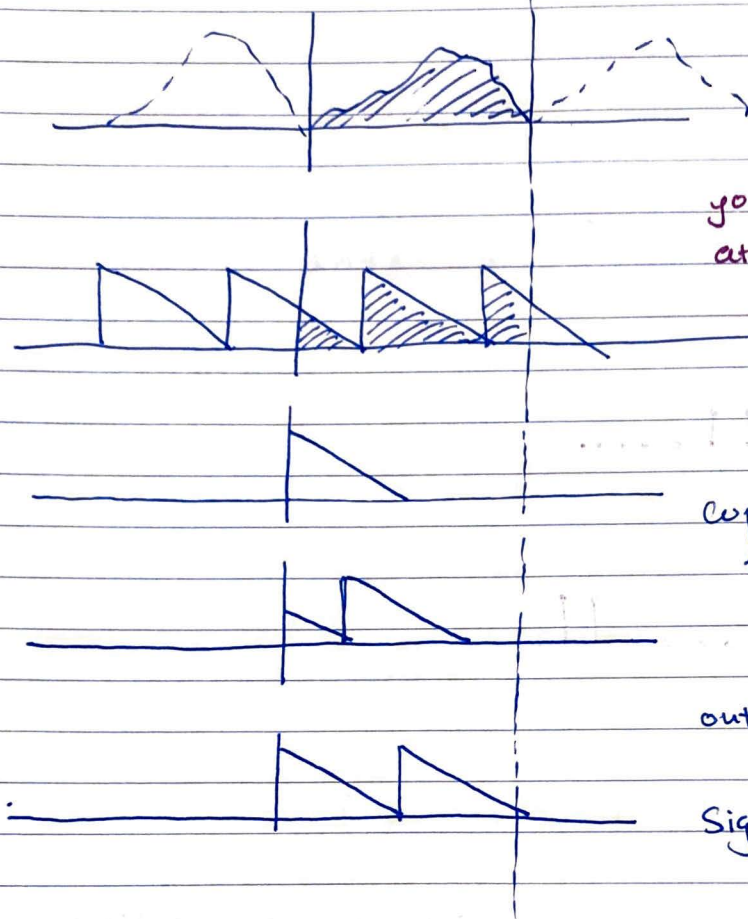 yo
at
out
Sig